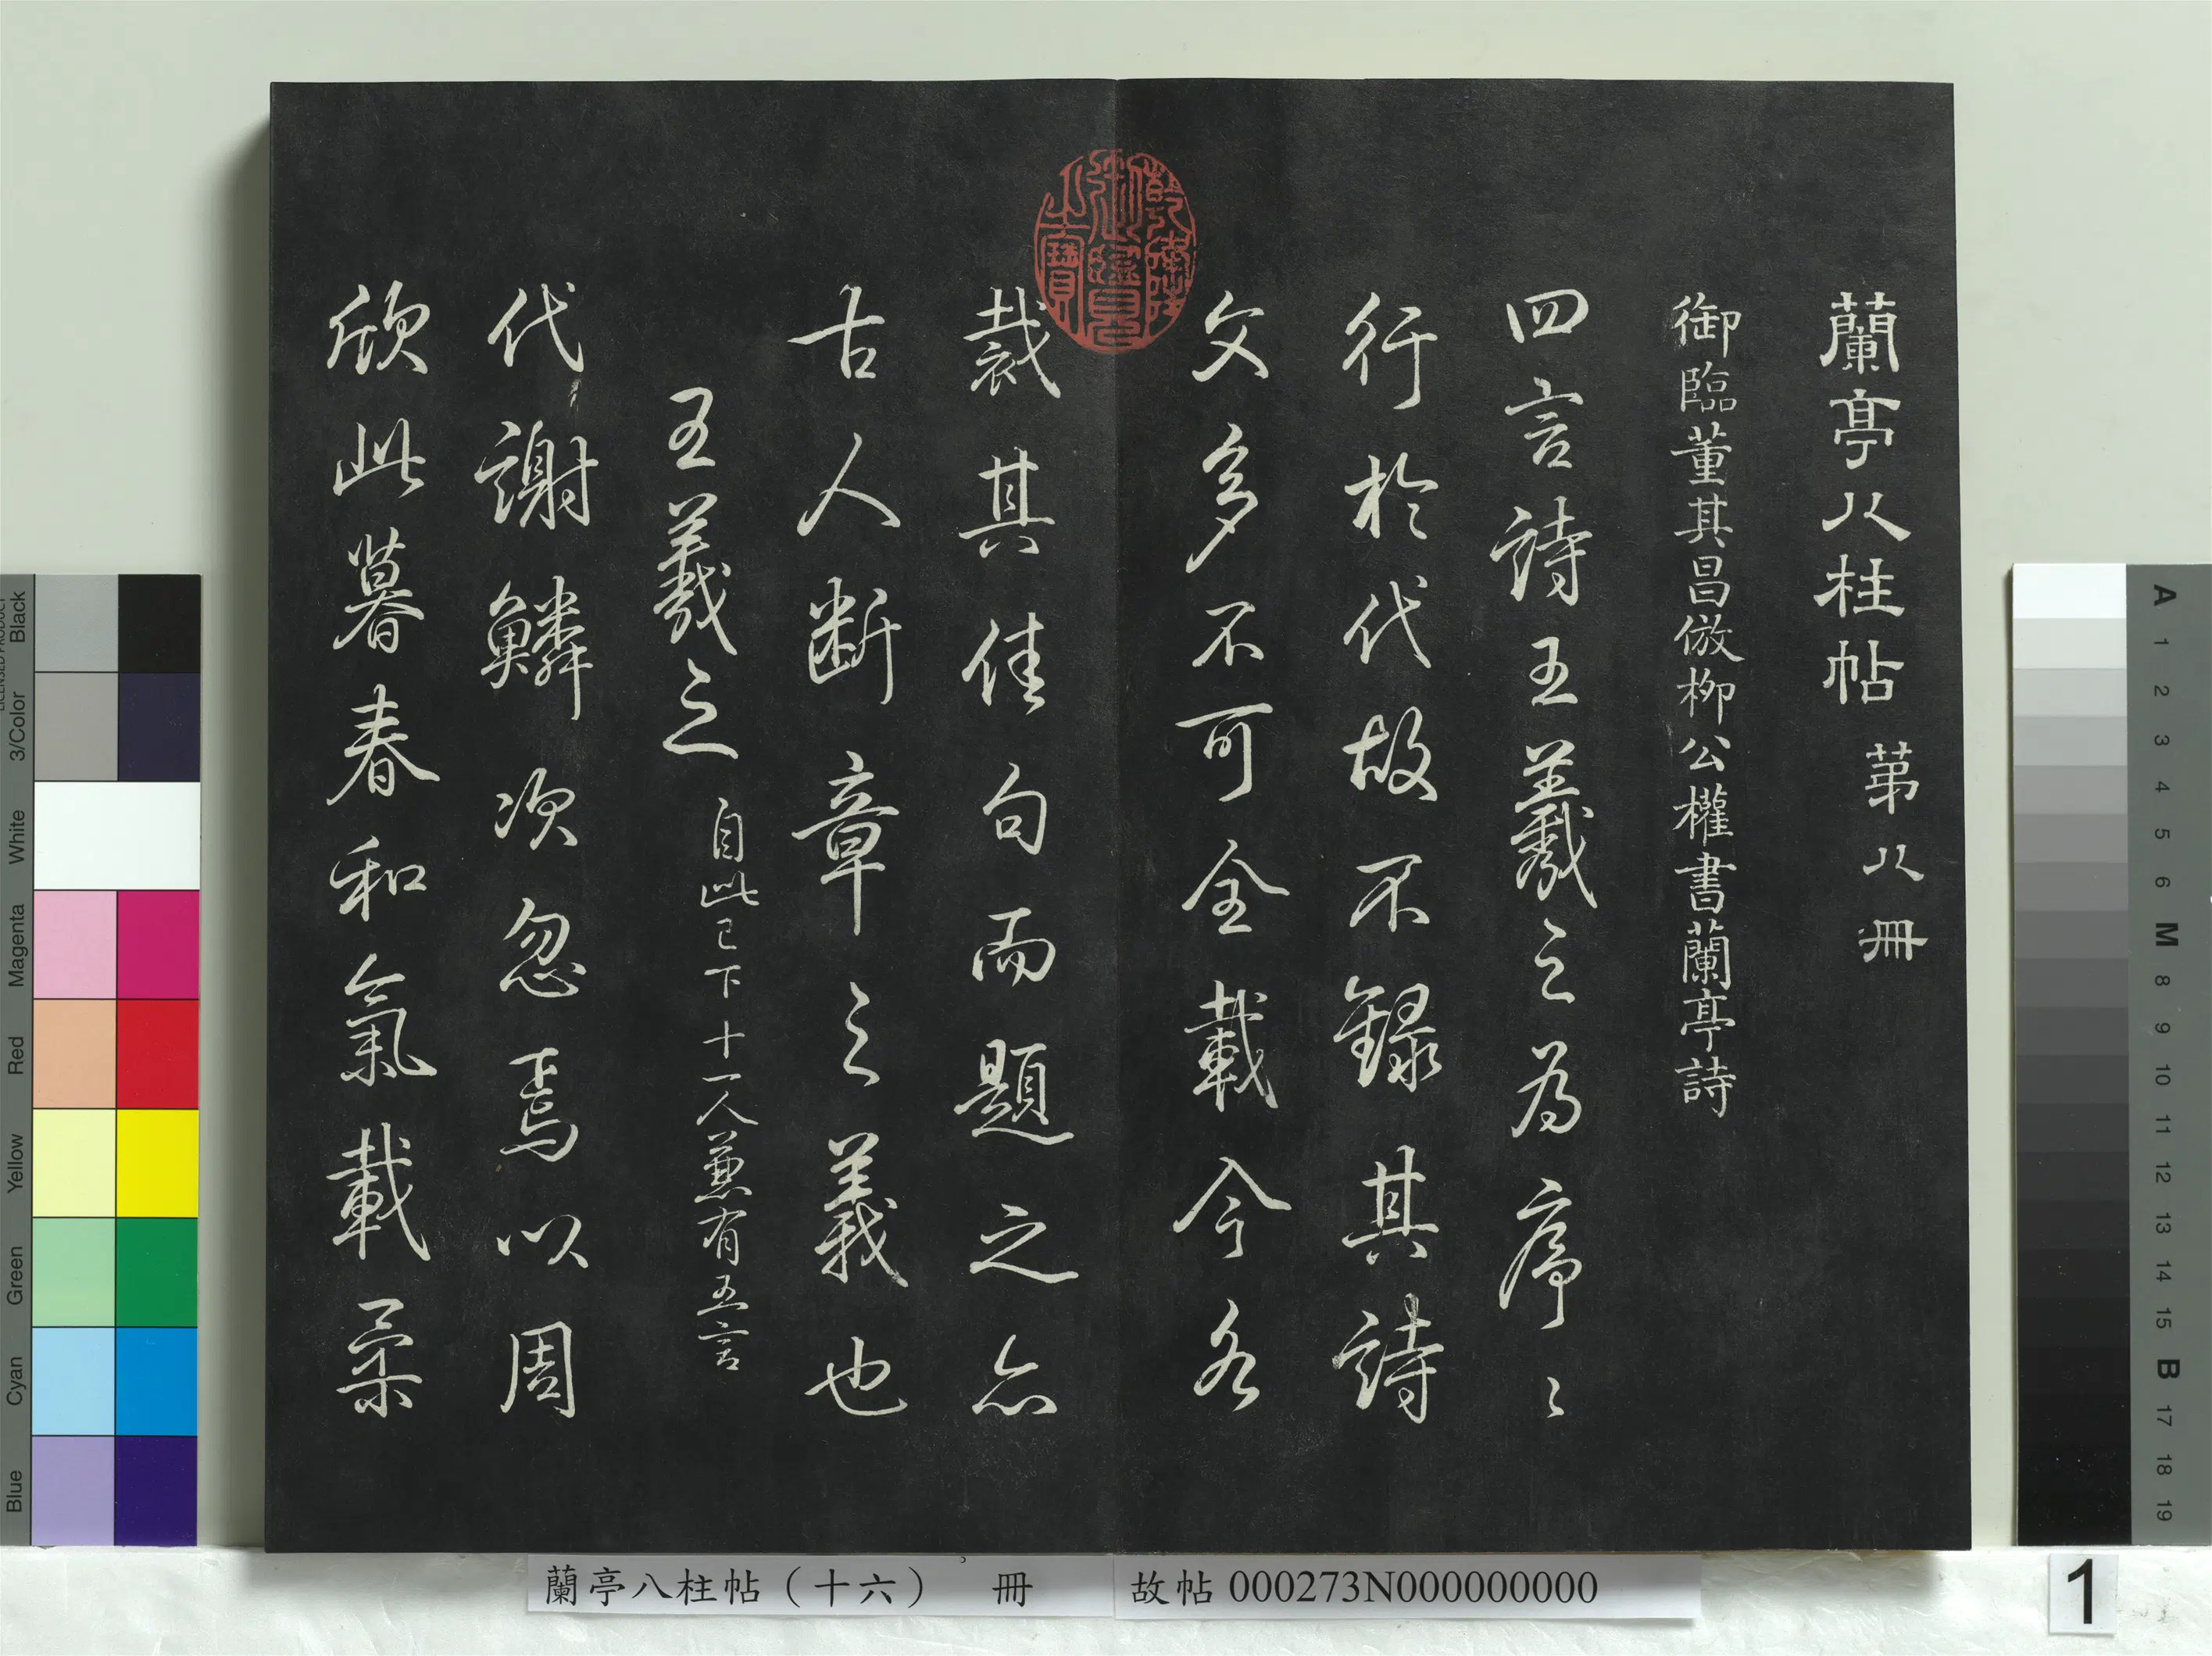 蘭亭八柱帖 第八冊
御臨董其昌倣柳公權書蘭亭詩
四言詩王羲之為序〻
行於代故不録其詩
文多不可全載今各
裁其佳句而題之亦
古人断章之義也
王羲之 自此已下十一人兼有五言
代謝鱗次忽焉以周
欣此暮春和氣載柔
乾隆御覽之寶
蘭亭八柱帖（十六） 冊
故帖000273N000000000
1
Black
3/Color
White
Magenta
Red
Yellow
Green
Cyan
Blue
A
1
2
3
4
5
6
M
8
9
10
11
12
13
14
15
B
17
18
19